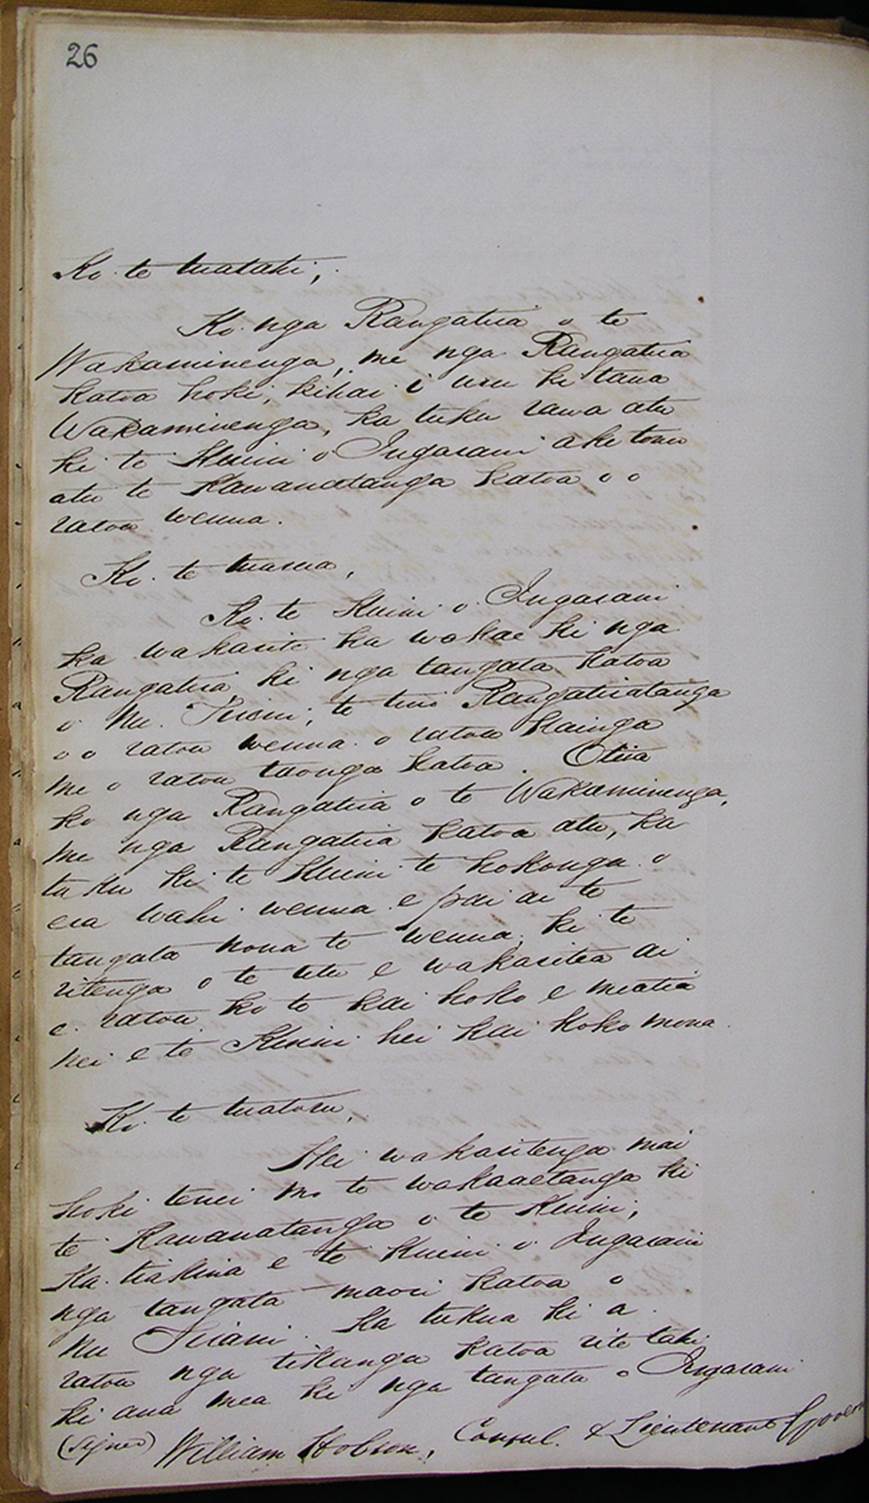 26
Ko te tuatahi,
Ko nga Rangatira o te
Wakaminenga, me nga Rangatira
katoa hoki, kihai i uru ki taua
Wakaminenga, ka tuku rawa atu
ki te Kuini o Ingarani ake tonu
atu te Kawanatanga katoa o o
ratou wenua.
Ko te tuarua,
Ko te Kuini o Ingarani
ka wakarite ka wakae ki nga
Rangatira ki nga tangata katoa
o Nu Tirani, te tino Rangatiratanga
o o ratou wenua o ratou kainga
me o ratou taonga katoa. Otiia
ko nga Rangatira o te Wakaminenga,
me nga Rangatira katoa atu, ka
tuku ki te Kuini te hokonga o
era wahi wenua e pai ai te
tangata nona te wenua, ki te
ritenga o te utu e wakaritea ai
e ratou ko te kai hoko e meatia
nei e te Kuini hei kai hoko mona.
Ko te tuatoru,
Hei wakaritenga mai
hoki tenei mo te wakaaetanga ki
te Kawanatanga o te Kuini,
Ka tiakina e te Kuini o Ingarani
nga tangata maori katoa o
Nu Tirani. Ka tukua ki a
ratou nga tikanga katoa rite tahi
ki ana mea ki nga tangata o Ingarani
(Signed) William Hobson, Consul & Lieutenant